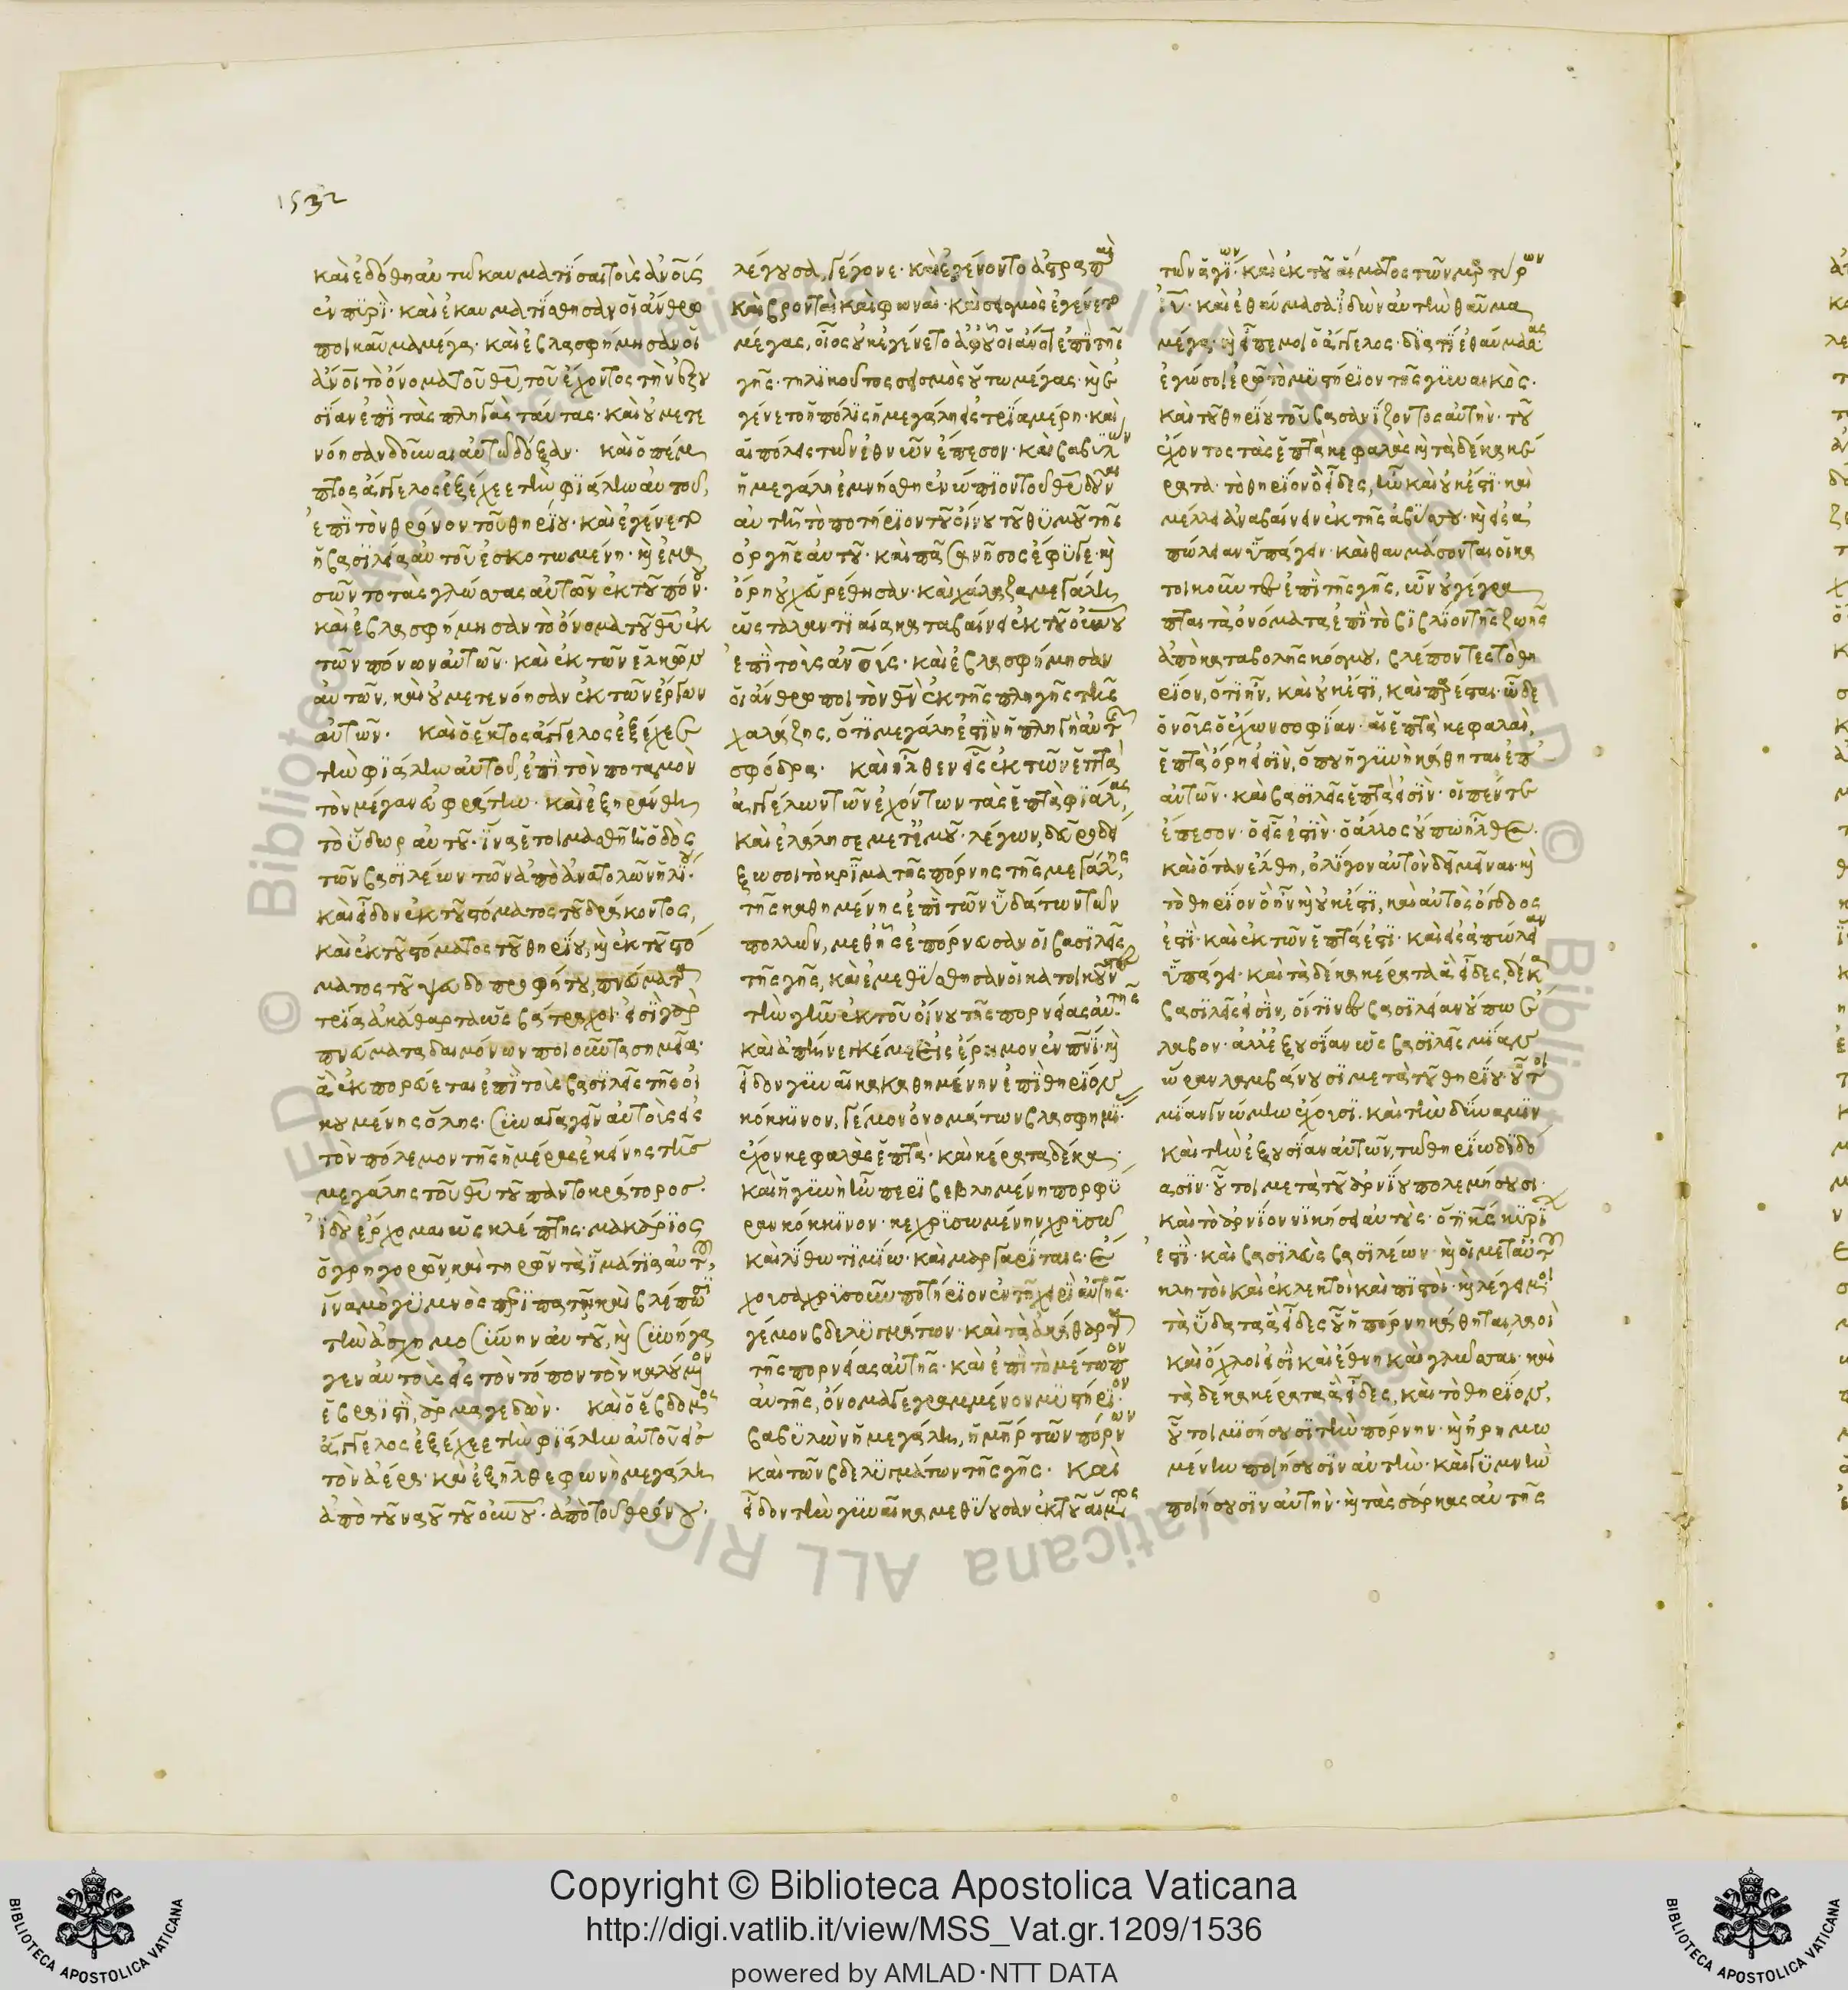 1532
καὶ ἐδόθη αὐτῶ καυματῖσαι τοὺς ἀνοῦς
ἐν πυρί· καὶ ἐκαυματίσθησαν οἱ ἄνθρω
ποι καῦμα μέγα· καὶ ἐβλασφήμησαν οἱ
ἀνοι τὸ ὄνομα τοῦ θυ, τοῦ ἔχοντος τὴν ἐξου
σίαν ἐπὶ τὰς πληγὰς ταύτας· καὶ οὐ μετε
νόησαν δοῦναι αὐτῶ δόξαν· καὶ ὁ πέμ
πτος ἄγγελος ἐξέχεε τὴν φιάλην αὐτοῦ,
ἐπὶ τὸν θρόνον τοῦ θηρίου· καὶ ἐγένετο
ἡ βασιλεία αὐτοῦ ἐσκοτωμένη· καὶ ἐμα
σῶντο τὰς γλώσσας αὐτῶν ἐκ τοῦ πόνου·
καὶ ἐβλασφήμησαν τὸ ὄνομα τοῦ θυ ἐκ
τῶν πόνων αὐτῶν· καὶ ἐκ τῶν ἑλκῶν
αὐτῶν, καὶ οὐ μετενόησαν ἐκ τῶν ἔργων
αὐτῶν· καὶ ὁ ἕκτος ἄγγελος ἐξέχεε
τὴν φιάλην αὐτοῦ, ἐπὶ τὸν ποταμὸν
τὸν μέγαν εὐφράτην· καὶ ἐξηράνθη
τὸ ὕδωρ αὐτοῦ· ἵνα ἑτοιμασθῆ ἡ ὁδὸς
τῶν βασιλέων τῶν ἀπὸ ἀνατολῶν ἡλίου·
καὶ εἶδον ἐκ τοῦ στόματος τοῦ δράκοντος,
καὶ ἐκ τοῦ στόματος τοῦ θηρίου, καὶ ἐκ τοῦ στό
ματος τοῦ ψευδοπροφήτου, πνεύματα
τρία ἀκάθαρτα ὡς βάτραχοι· εἰσὶ γὰρ
πνεύματα δαιμόνων ποιοῦντα σημεῖα·
ἃ ἐκπορεύεται ἐπὶ τοὺς βασιλεῖς τῆς οἰ
κουμένης ὅλης· συναγαγεῖν αὐτοὺς εἰς
τὸν πόλεμον τῆς ἡμέρας ἐκείνης τῆς
μεγάλης τοῦ θυ τοῦ παντοκράτορος·
ἰδοὺ ἔρχομαι ὡς κλέπτης· μακάριος
ὁ γρηγορῶν, καὶ τηρῶν τὰ ἱμάτια αὐτοῦ,
ἵνα μὴ γυμνὸς περιπατῆ καὶ βλέπωσι
τὴν ἀσχημοσύνην αὐτοῦ, καὶ συνήγα
γεν αὐτοὺς εἰς τὸν τόπον τὸν καλούμενον
ἑβραϊστὶ, ἁρμαγεδών· καὶ ὁ ἕβδομος
ἄγγελος ἐξέχεε τὴν φιάλην αὐτοῦ εἰς
τὸν ἀέρα· καὶ ἐξῆλθε φωνὴ μεγάλη
ἀπὸ τοῦ ναοῦ τοῦ ουνου· ἀπὸ τοῦ θρόνου·
λέγουσα, γέγονε· καὶ ἐγένοντο ἀστραπαὶ
καὶ βρονταὶ καὶ φωναὶ· καὶ σεισμὸς ἐγένετο
μέγας, οἷος οὐκ ἐγένετο ἀφ' οὗ οἱ ἄνοι ἐπὶ τῆς
γῆς· τηλικοῦτος σεισμὸς οὕτω μέγας· καὶ ἐ
γένετο ἡ πόλις ἡ μεγάλη εἰς τρία μέρη· καὶ
αἱ πόλεις τῶν ἐθνῶν ἔπεσον· καὶ βαβυλὼν
ἡ μεγάλη ἐμνήσθη ἐνώπιον τοῦ θυ δοῦναι
αὐτῆ τὸ ποτήριον τοῦ οἴνου τοῦ θυμοῦ τῆς
ὀργῆς αὐτοῦ· καὶ πᾶσα νῆσος ἔφυγε· καὶ
ὄρη οὐχ εὑρέθησαν· καὶ χάλαζα μεγάλη
ὡς ταλαντιαία καταβαίνει ἐκ τοῦ ουνου
ἐπὶ τοὺς ἀνους· καὶ ἐβλασφήμησαν
οἱ ἄνθρωποι τὸν θν ἐκ τῆς πληγῆς τῆς
χαλάζης, ὅτι μεγάλη ἐστὶν ἡ πληγὴ αὐτῆς
σφόδρα· καὶ ἦλθεν εἷς ἐκ τῶν ἑπτὰ
ἀγγέλων τῶν ἐχόντων τὰς ἑπτὰ φιάλας,
καὶ ἐλάλησε μετ' ἐμοῦ· λέγων, δεῦρο δεί
ξω σοι τὸ κρῖμα τῆς πόρνης τῆς μεγάλης,
τῆς καθημένης ἐπὶ τῶν ὑδάτων τῶν
πολλῶν, μεθ' ἧς ἐπόρνευσαν οἱ βασιλεῖς
τῆς γῆς, καὶ ἐμεθύσθησαν οἱ κατοικοῦντες
τὴν γῆν ἐκ τοῦ οἴνου τῆς πορνείας αὐτῆς·
καὶ ἀπήνεγκέ με εἰς ἔρημον ἐν πνι· καὶ
εἶδον γυναῖκα καθημένην ἐπὶ θηρίον
κόκκινον, γέμον ὀνομάτων βλασφημίας·
ἔχον κεφαλὰς ἑπτὰ· καὶ κέρατα δέκα·
καὶ ἡ γυνὴ ἦν περιβεβλημένη πορφύ
ραν κόκκινον· κεχρισωμένην χρισῶ
καὶ λίθω τιμίω· καὶ μαργαρίταις· ἔ
χουσα χρισοῦν ποτήριον ἐν τῆ χειρὶ αὐτῆς·
γέμον βδελυγμάτων· καὶ τὰ ἀκάθαρτα
τῆς πορνείας αὐτῆς· καὶ ἐπὶ τὸ μέτωπον
αὐτῆς, ὄνομα γεγραμμένον μυστήριον·
βαβυλὼν ἡ μεγάλη, ἡ μηρ τῶν πόρνων
καὶ τῶν βδελυγμάτων τῆς γῆς· καὶ
εἶδον τὴν γυναῖκα μεθύουσαν ἐκ τοῦ αἵματος
τῶν ἁγίων· καὶ ἐκ τοῦ αἵματος τῶν μαρτύρων
ιυ· καὶ ἐθαύμασα ἰδὼν αὐτὴν θαῦμα
μέγα· καὶ εἶπέ μοι ὁ ἄγγελος· διατί ἐθαύμασας·
ἐγώ σοι ἐρῶ τὸ μυστήριον τῆς γυναικὸς·
καὶ τοῦ θηρίου τοῦ βαστάζοντος αὐτήν· τοῦ
ἔχοντος τὰς ἑπτὰ κεφαλὰς καὶ τὰ δέκα κέ
ρατα· τὸ θηρίον ὃ εἶδες, ἦν καὶ οὐκ ἔστι· καὶ
μέλλει ἀναβαίνειν ἐκ τῆς ἀβύσσου· καὶ εἰς ἀ
πώλειαν ὑπάγειν· καὶ θαυμάσονται οἱ κα
τοικοῦντες ἐπὶ τῆς γῆς, ὧν οὐ γέγρα
πται τὰ ὀνόματα ἐπὶ τὸ βιβλίον τῆς ζωῆς
ἀπὸ καταβολῆς κόσμου, βλέποντες τὸ θη
ρίον, ὅτι ἦν, καὶ οὐκ ἔστι, καὶ παρέσται· ὧδε
ὁ νοῦς ὁ ἔχων σοφίαν· αἱ ἑπτὰ κεφαλαὶ,
ἑπτὰ ὄρη εἰσὶν, ὅπου ἡ γυνὴ κάθηται ἐπ'
αὐτῶν· καὶ βασιλεῖς ἑπτὰ εἰσὶν· οἱ πέντε
ἔπεσον· ὁ εἷς ἐστὶν· ὁ ἄλλος οὔπω ἦλθε·
καὶ ὅταν ἔλθη, ὀλίγον αὐτὸν δεῖ μεῖναι· καὶ
τὸ θηρίον ὃ ἦν καὶ οὐκ ἔστι, καὶ αὐτὸς ὄγδοος
ἐστὶ· καὶ ἐκ τῶν ἑπτά ἐστι· καὶ εἰς ἀπώλειαν
ὑπάγει· καὶ τὰ δέκα κέρατα ἃ εἶδες, δέκα
βασιλεῖς εἰσὶν, οἵτινες βασιλείαν οὔπω ἔ
λαβον· ἀλλ' ἐξουσίαν ὡς βασιλεῖς μίαν
ὥραν λαμβάνουσι μετὰ τοῦ θηρίου· οὗτοι
μίαν γνώμην ἔχουσι· καὶ τὴν δύναμιν
καὶ τὴν ἐξουσίαν αὐτῶν, τῶ θηρίω διδό
ασιν· οὗτοι μετὰ τοῦ ἀρνίου πολεμήσουσι·
καὶ τὸ ἀρνίον νικήσει αὐτούς· ὅτι κς κυρίων
ἐστὶ· καὶ βασιλεὺς βασιλέων· καὶ οἱ μετ' αὐτοῦ
κλητοὶ καὶ ἐκλεκτοὶ καὶ πιστοὶ· καὶ λέγει μοι
τὰ ὕδατα ἃ εἶδες οὗ ἡ πόρνη κάθηται, λαοὶ
καὶ ὄχλοι εἰσὶ καὶ ἔθνη καὶ γλῶσσαι· καὶ
τὰ δέκα κέρατα ἃ εἶδες, καὶ τὸ θηρίον,
οὗτοι μισήσουσι τὴν πόρνην· καὶ ἠρημω
μένην ποιήσουσιν αὐτὴν· καὶ γυμνὴν
ποιήσουσιν αὐτὴν· καὶ τὰς σάρκας αὐτῆς
Copyright © Biblioteca Apostolica Vaticana
http://digi.vatlib.it/view/MSS_Vat.gr.1209/1536
powered by AMLAD·NTT DATA
BIBLIOTECA APOSTOLICA VATICANA
BIBLIOTECA APOSTOLICA VATICANA